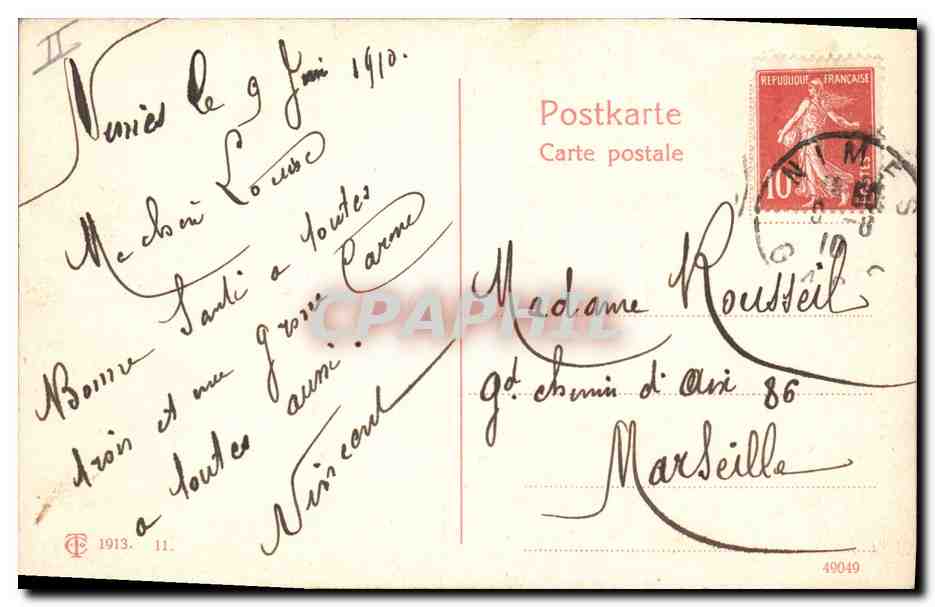 II
Nimes le 9 Juin 1910.
Ma chère Louise
Bonne Santé a toutes
trois et une grosse Caresse
a toutes aussi.
Vincent
TC 1913. 11.
Postkarte
Carte postale
REPUBLIQUE FRANÇAISE
10
POSTES
NIMES
10
GARD
Madame Rousseil
gd. chemin d'Aix 86
Marseille
49049
CPAPHIL